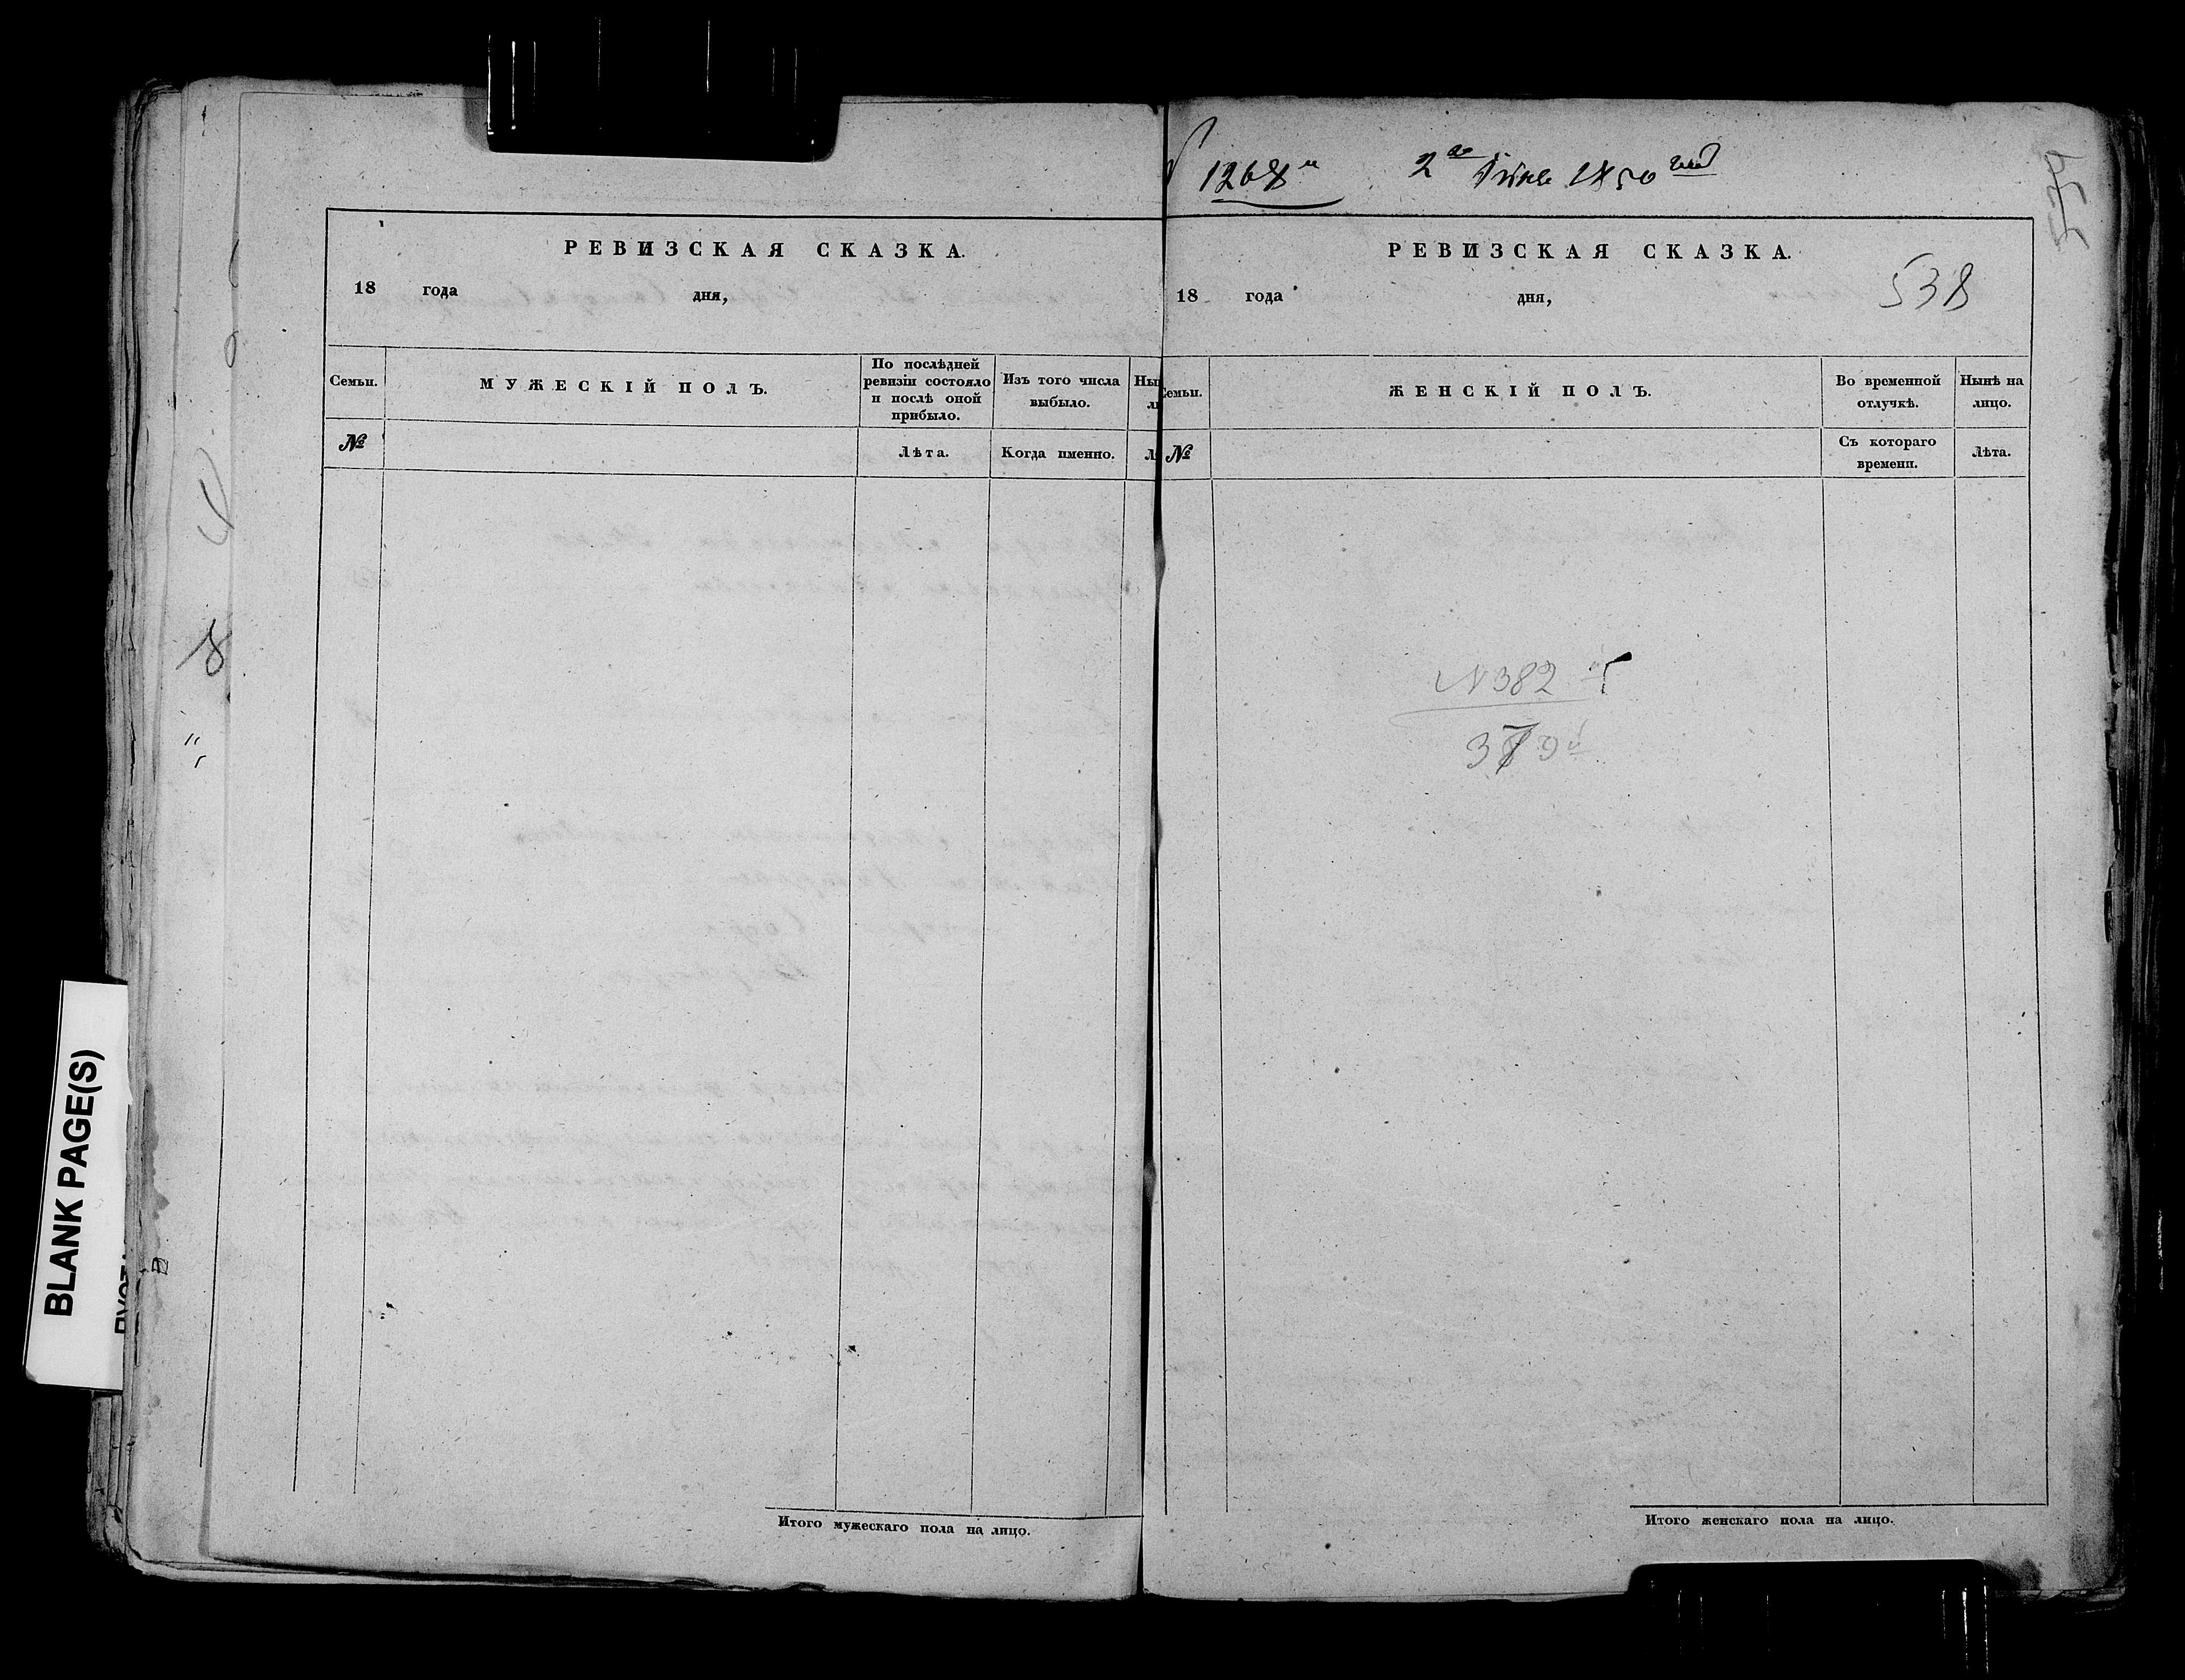 РЕВИЗСКАЯ СКАЗКА.
18 года дня,
Семьи.
МУЖЕСКІЙ ПОЛЪ.
По послѣдней ревизіи состояло и послѣ оной прибыло.
Изъ того числа выбыло.
№
Лѣта.
Когда именно.
Итого мужескаго пола на лицо.
1268
2го 1850 года
РЕВИЗСКАЯ СКАЗКА.
18 года дня,
538
емьи.
ЖЕНСКІЙ ПОЛЪ.
Во временной отлучкѣ.
Нынѣ на лицо.
№
Съ котораго времени.
Лѣта.
№382
Итого женскаго пола на лицо.
BLANK PAGE(S)